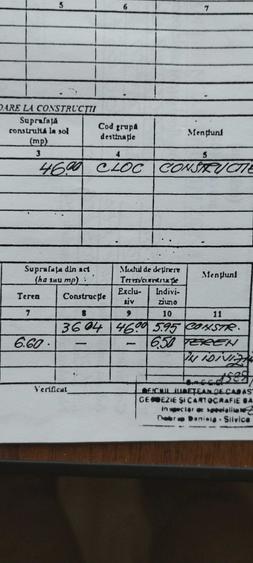 5 6 7
DARE LA CONSTRUCȚII
Suprafață construită la sol (mp) Cod grupă destinație Mențiuni
3 4 5
46,00 CLOC CONSTRUCTIE
Suprafața din act (ha sau mp) Modul de deținere Teren/construcție Mențiuni
Teren Construcție Exclu-siv Indivi-ziune
7 8 9 10 11
36.04 46,00 5.95 CONSTR.
6.60. — — 6,50 TEREN
IN INDIVIZ
Verificat
OFICIUL JUDETEAN DE CADAS
GEODEZIE SI CARTOGRAFIE BA
Inspector de specialitate
Daniela - Silvica